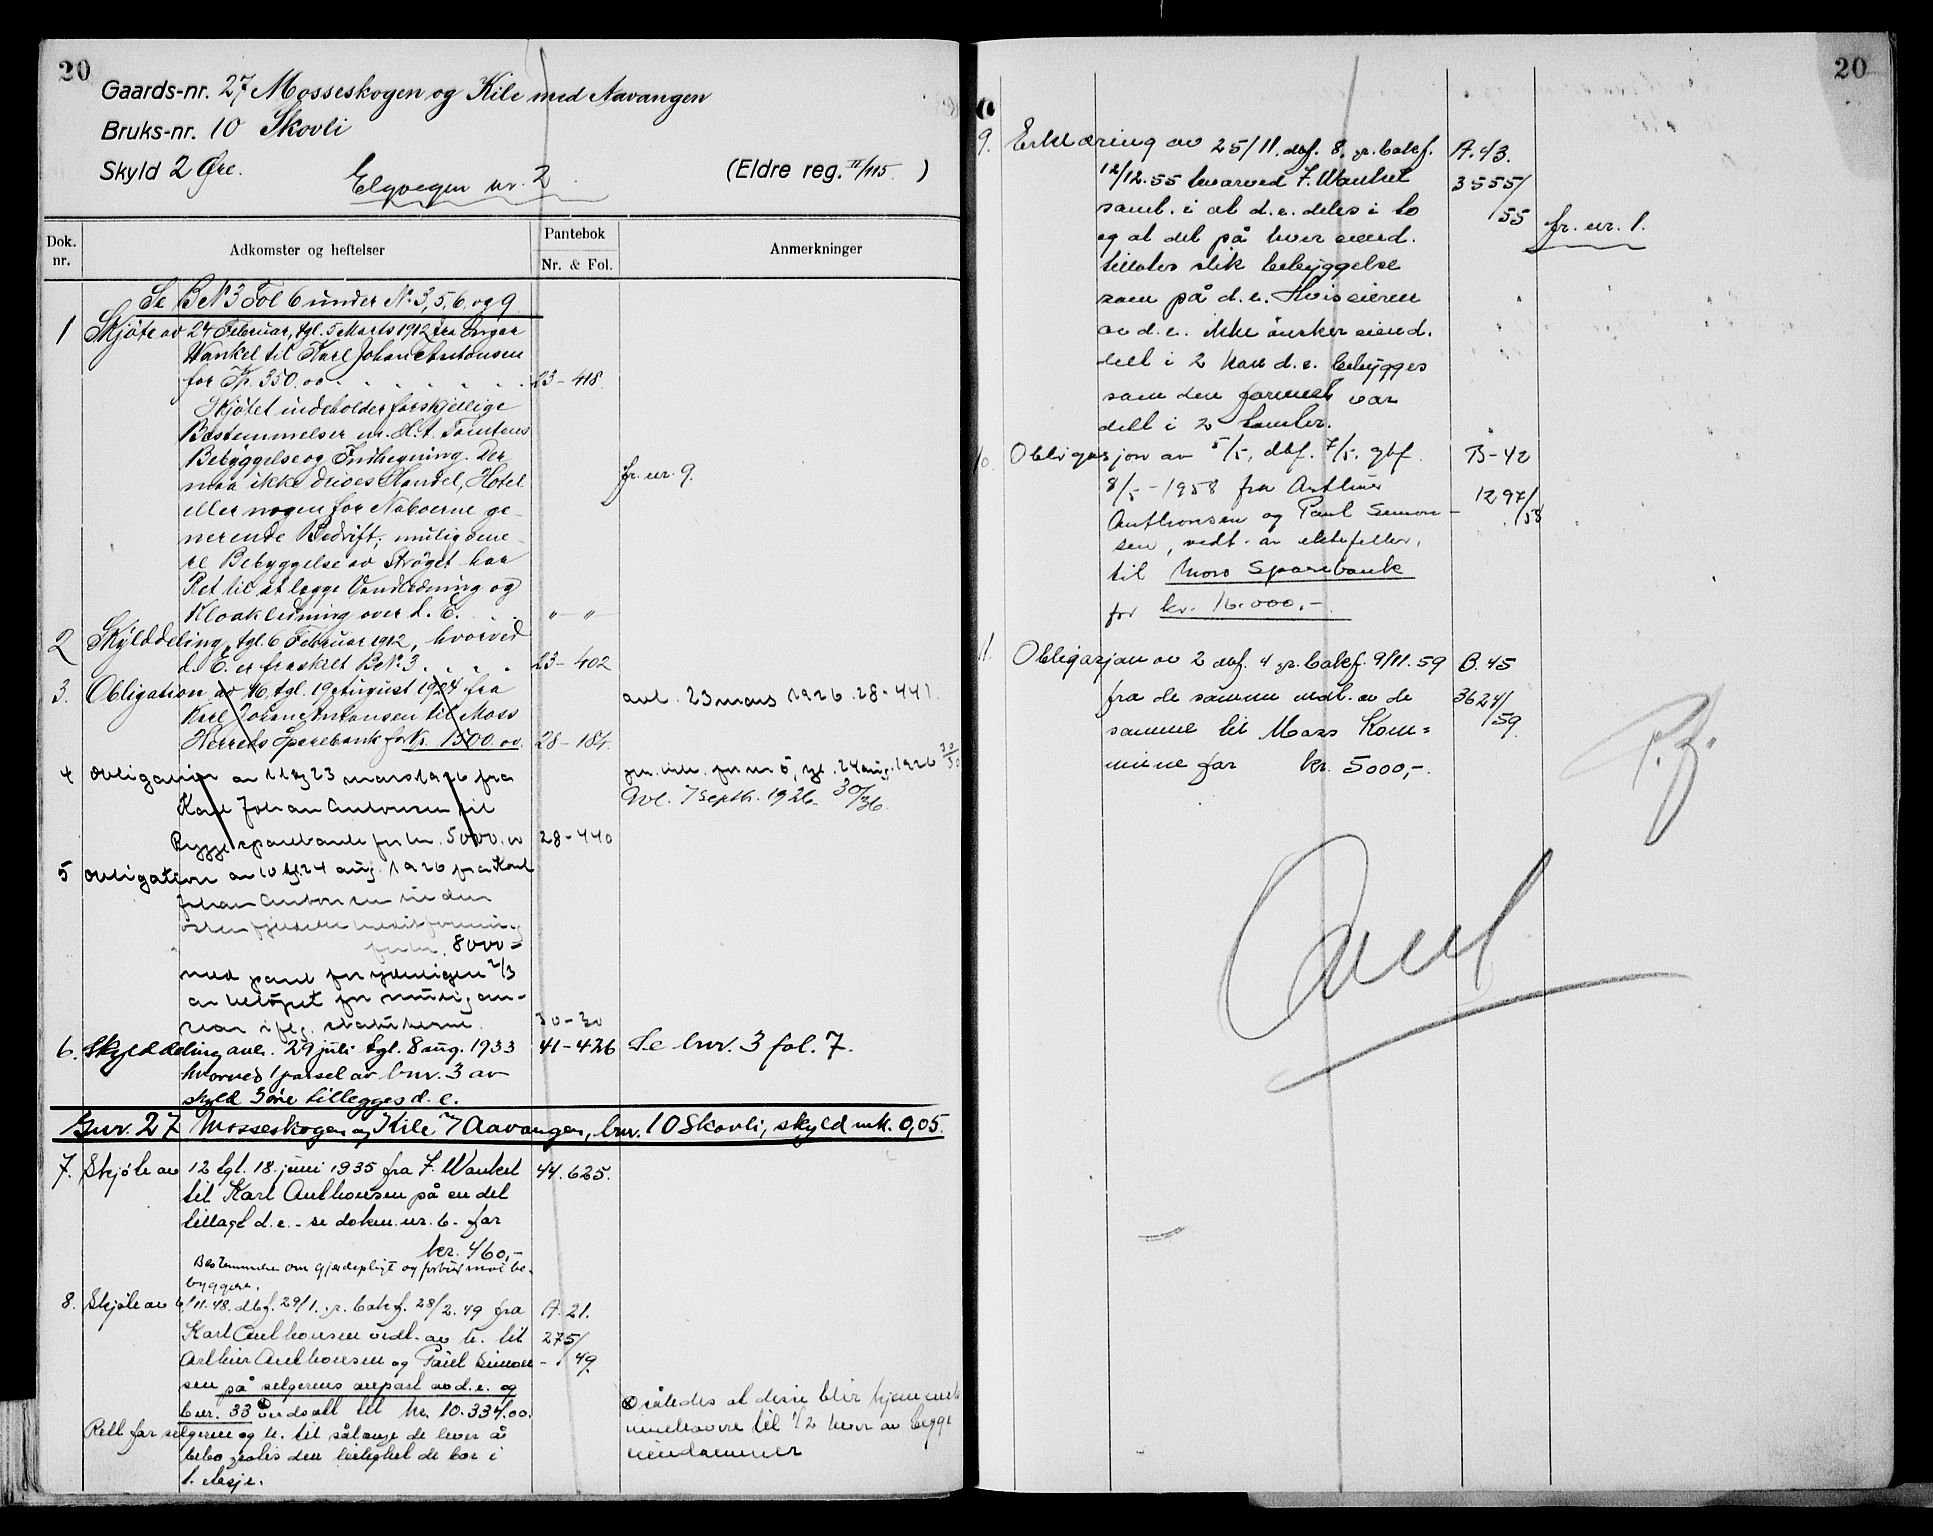 20
Gaards-nr. 27 Mosseskogen og Kile med Aavangen
Bruks-nr. 10 Skovli
Skyld 2 Øre.
Elgvegen nr. 2
(Eldre reg. II/115 )
Dok. nr.
Adkomster og heftelser
Pantebok
Nr. & Fol.
Anmerkninger
Se B№3 Fol 6 under №. 3, 5, 6, og 9
1 Skjøte av 24 Februar, tgl. 5 Marts 1912 fra
Wankel til Karl Johan Antonsen
for Kr. 350.00 . . . . . . 23-418.
Skjøtet indeholder forskjellige
Bestemmelser m. H. t. Tomtens
Bebyggelse og Indhegning. Der
maa ikke drives Handel, Hotel
fr. nr. 9.
eller nogen for Naboerne ge-
nerende Bedrift; mulig sene-
re Bebyggelse av Strøget har
Ret til at lægge Vandledning og
Kloakledning over d. E. . . „ — „
2 Skylddeling, tgl. 6 Februar 1912, hvorved
d. E. er fraskilt B№.3 . . . . 23-402
3. Obligation av 16, tgl. 19 August 1924 fra
avl. 23 mars 1926. 28-441.
Karl Johan Antonsen til Moss
Herreds Sparebank for Kr. 1500.00. 28-184.
4 Obligation av 11 tgl 23 mars 1926 fra
for nr 5, tgl. 24 aug. 1926 30/30
Karl Johan Antonsen til
Avl. 7 septb. 1926. 30/36.
Rygge sparebank for kr. 5000.00 28-440
5 Obligation av 10 tgl. 24 aug. 1926 fra Karl
Johan Antonsen til den
for kr. 8000-
med pant for yderligere 2/3
av beløpet for mulig an-
svar ifølg. statuterne. 30-30
6. Skylddeling avh. 29 juli tgl. 8 aug. 1933 41-426 Se bnr. 3 fol. 7.
hvorved 1 parsel av bnr. 3 av
skyld 3 øre tillegges d. e.
Gnr. 27 Mosseskogen og Kile m/Aavangen, bnr. 10 Skovli, skyld mk. 0,05.
7. Skjøte av 12 tgl. 18. juni 1935 fra F. Wankel 44.625.
til Karl Anthonsen på en del
tillagt d. e. - se dokm. nr. 6 - for
kr. 460,-
Bestemmelse om gjerdeplikt og forbud mot be-
byggere.
8. Skjøte av 6/11.48. dbf. 29/1. gr. bokf. 28/2.49 fra A. 21.
Karl Anthonsen vedt. av h. til 275/
Arthur Anthonsen og Paul Simon- 49.
sen på selgerens anpart av d. e. og
bnr. 33 ⊗ verdsatt til kr. 10.334.00.
⊗ således at disse blir hjemmels
Rett for selgeren og h. til sålenge de lever å
innehavere til 1/2 hver av begge
bebo gratis den leilighet de bor i
eiendommer
1. etasje.
20
9. Erklæring av 25/11. dbf. 8. gr. bokf. A. 43.
12/12.55 hvorved F. Wankel 3555/
samt. i at d. e. deles i to 55 fr. nr. 1.
og at det på hver eiend.
tillates slik bebyggelse
som på d. e. Hvis eieren
av d. e. ikke ønsker eiend.
delt i 2 kan d. e. bebygges
som den formelt var
delt i 2 tomter.
10. Obligasjon av 5/5, dbf. 7/5. gbf. B-42
8/5-1958 fra Arthur 1297/
Anthonsen og Paul Simon- 58
sen, vedt. av ektefeller,
til Moss Sparebank
for kr. 16.000,-.
11. Obligasjon av 2 dbf. 4 gr. bokf. 9/11.59 B. 45
fra de samme vedt. av de 3624/
samme til Moss Kom= 59.
mune for kr. 5000,-.